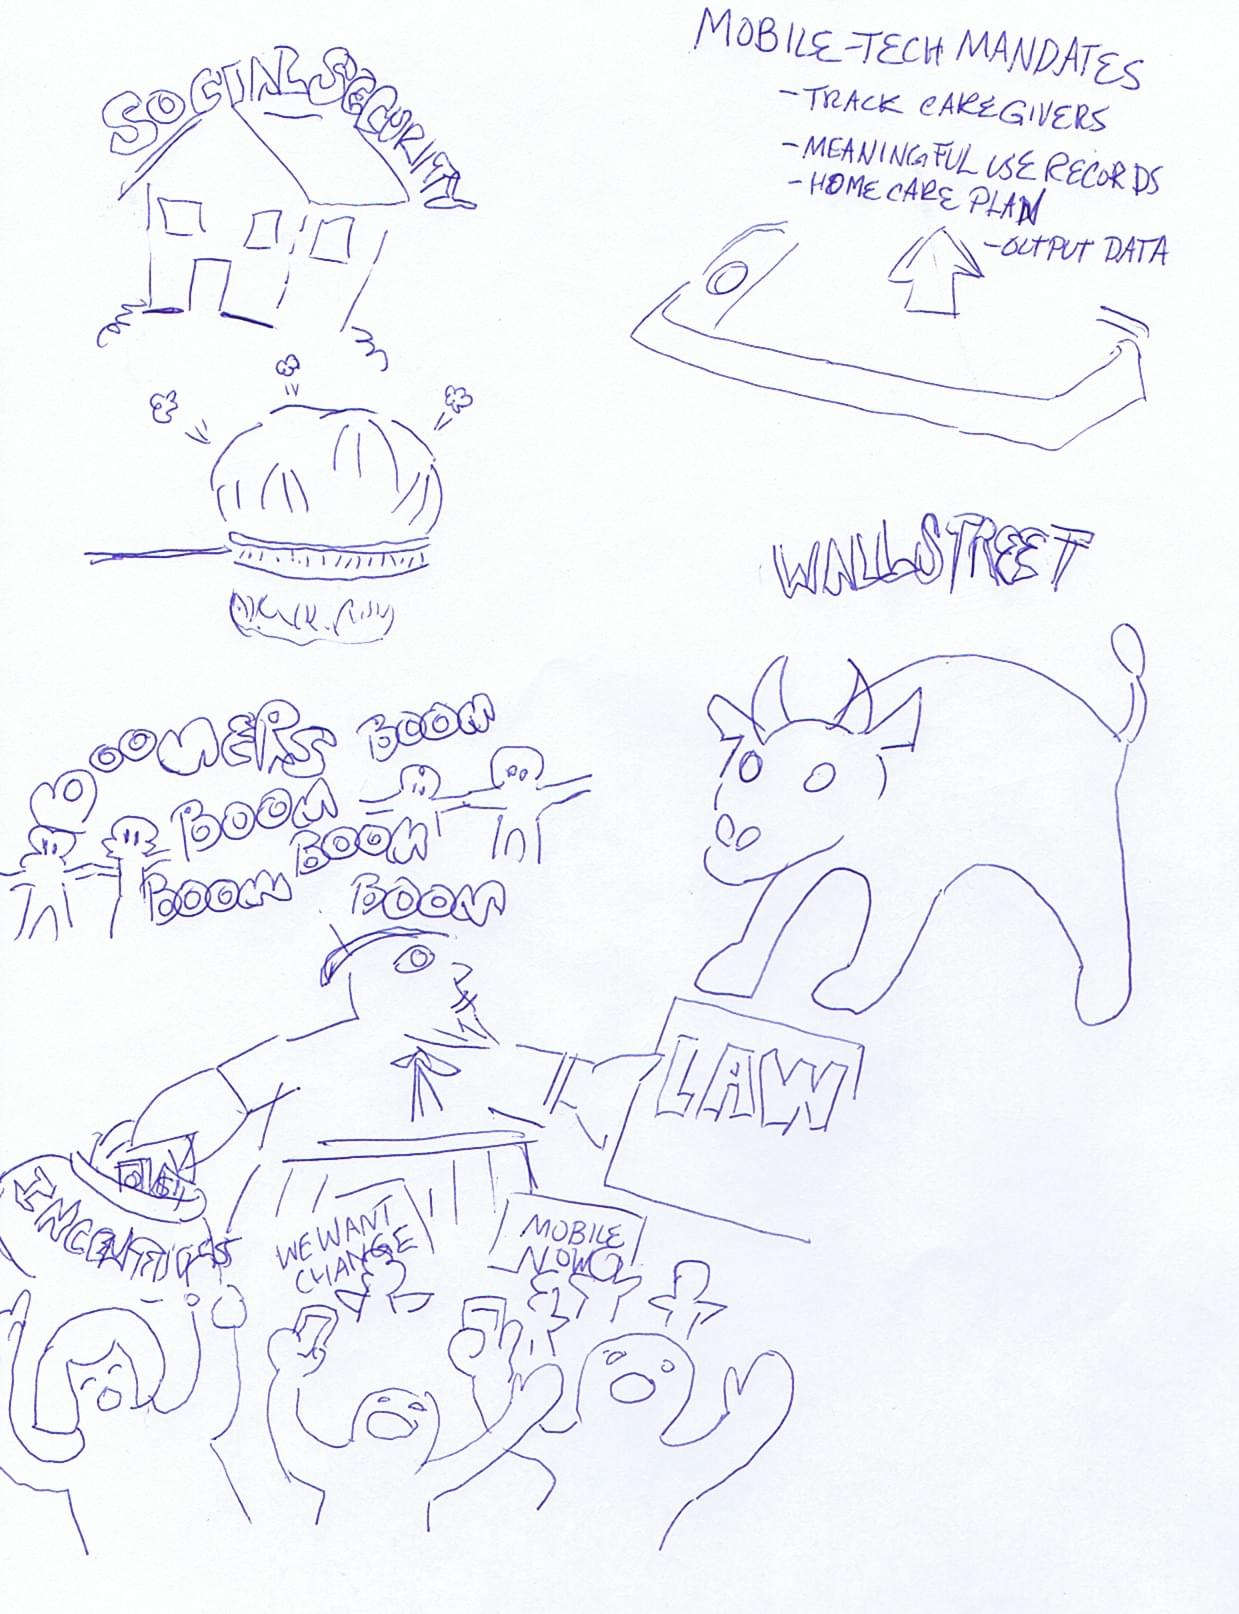 SOCIAL SECURITY
MOBILE-TECH MANDATES
- TRACK CAREGIVERS
- MEANINGFUL USE RECORDS
- HOME CARE PLAN
- OUTPUT DATA
WALLSTREET
BOOMERS BOOM
BOOM
BOOM
BOOM
BOOM
LAW
INCENTIVES
WE WANT
CHANGE
MOBILE
NOW